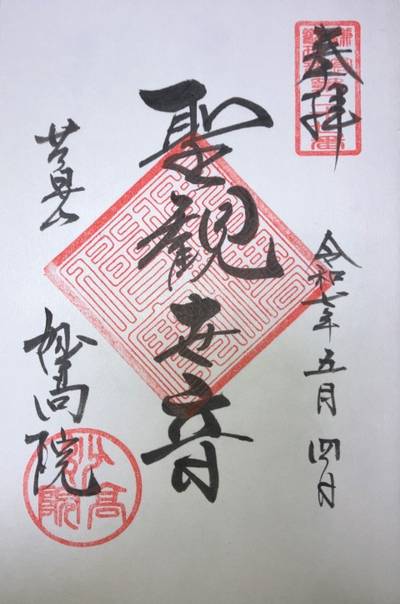 奉拝
令和七年五月四日
聖観世音
妙高院
妙高院